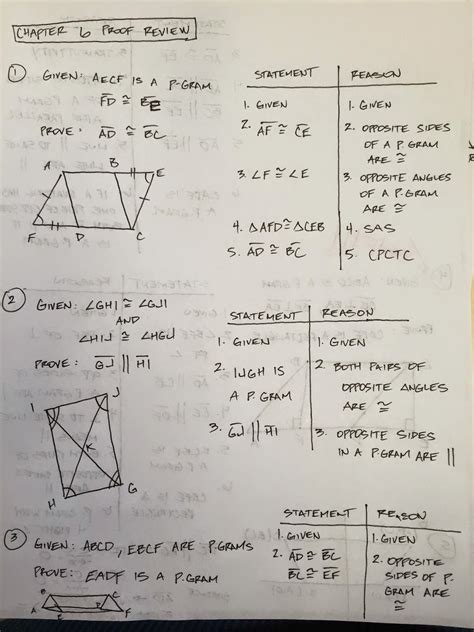 CHAPTER 6 PROOF REVIEW
1 GIVEN: AECF IS A P-GRAM
FD ≅ BE
PROVE: AD ≅ BC
A B E
F D C
STATEMENT REASON
1. GIVEN 1. GIVEN
2. AF ≅ CE 2. OPPOSITE SIDES
OF A P.GRAM
ARE ≅
3. ∠F ≅ ∠E 3. OPPOSITE ANGLES
OF A P.GRAM
ARE ≅
4. △AFD ≅ △CEB 4. SAS
5. AD ≅ BC 5. CPCTC
2 GIVEN: ∠GHI ≅ ∠GJI
AND
∠HIJ ≅ ∠HGJ
PROVE: GJ || HI
I J
K
H G
STATEMENT REASON
1. GIVEN 1. GIVEN
2. IJGH IS 2 BOTH PAIRS OF
A P.GRAM OPPOSITE ANGLES
ARE ≅
3. GJ || HI 3. OPPOSITE SIDES
IN A P.GRAM ARE ||
3 GIVEN: ABCD, EBCF ARE P-GRAMS
PROVE: EADF IS A P-GRAM
B C
A E D F
STATEMENT REASON
1. GIVEN 1. GIVEN
2. AD ≅ BC 2. OPPOSITE
BC ≅ EF SIDES OF P.
GRAM ARE
≅